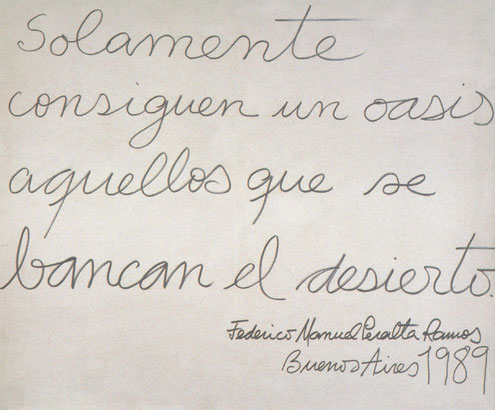 Solamente
consiguen un oasis
aquellos que se
bancan el desierto.
Federico Manuel Peralta Ramos
Buenos Aires 1989